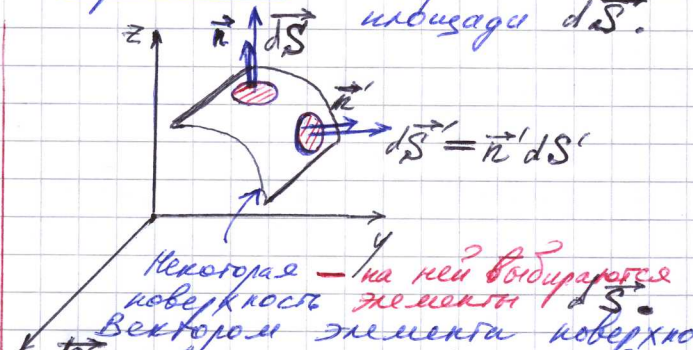 площади dS⃗.
z n⃗ dS⃗
n⃗′
dS⃗′ = n⃗′ dS′
y
Некоторая — на ней выбираются
поверхность элементы dS⃗.
Вектором элемента поверхно